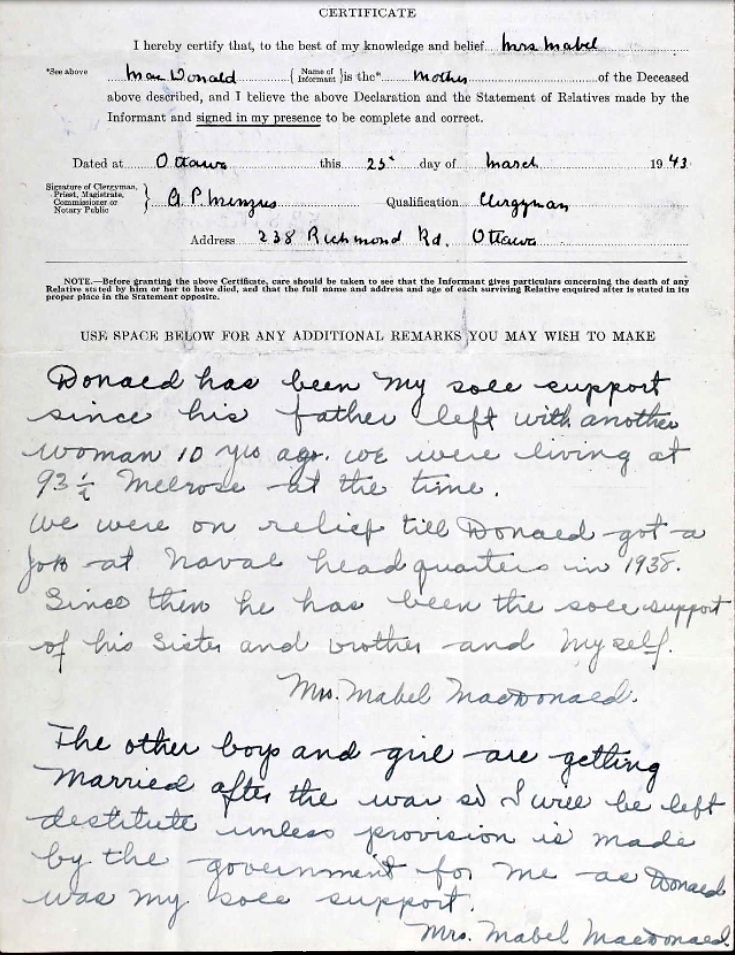 CERTIFICATE
I hereby certify that, to the best of my knowledge and belief Mrs Mabel
*See above MacDonald { Name of Informant } is the* Mother of the Deceased
above described, and I believe the above Declaration and the Statement of Relatives made by the
Informant and signed in my presence to be complete and correct.
Dated at Ottawa this 25th day of March 1943
Signature of Clergyman,
Priest, Magistrate,
Commissioner or
Notary Public } G. P. Menzies Qualification Clergyman
Address 238 Richmond Rd. Ottawa
NOTE.—Before granting the above Certificate, care should be taken to see that the Informant gives particulars concerning the death of any
Relative stated by him or her to have died, and that the full name and address and age of each surviving Relative enquired after is stated in its
proper place in the Statement opposite.
USE SPACE BELOW FOR ANY ADDITIONAL REMARKS YOU MAY WISH TO MAKE
Donald has been my sole support
since his father left with another
woman 10 yrs ago. We were living at
93½ Melrose at the time.
We were on relief till Donald got a
job at Naval headquarters in 1938.
Since then he has been the sole support
of his Sister and brother and Myself.
Mrs. Mabel MacDonald.
The other boys and girl are getting
Married after the war so I will be left
destitute unless provision is made
by the government for me as Donald
was my sole support.
Mrs. Mabel MacDonald.